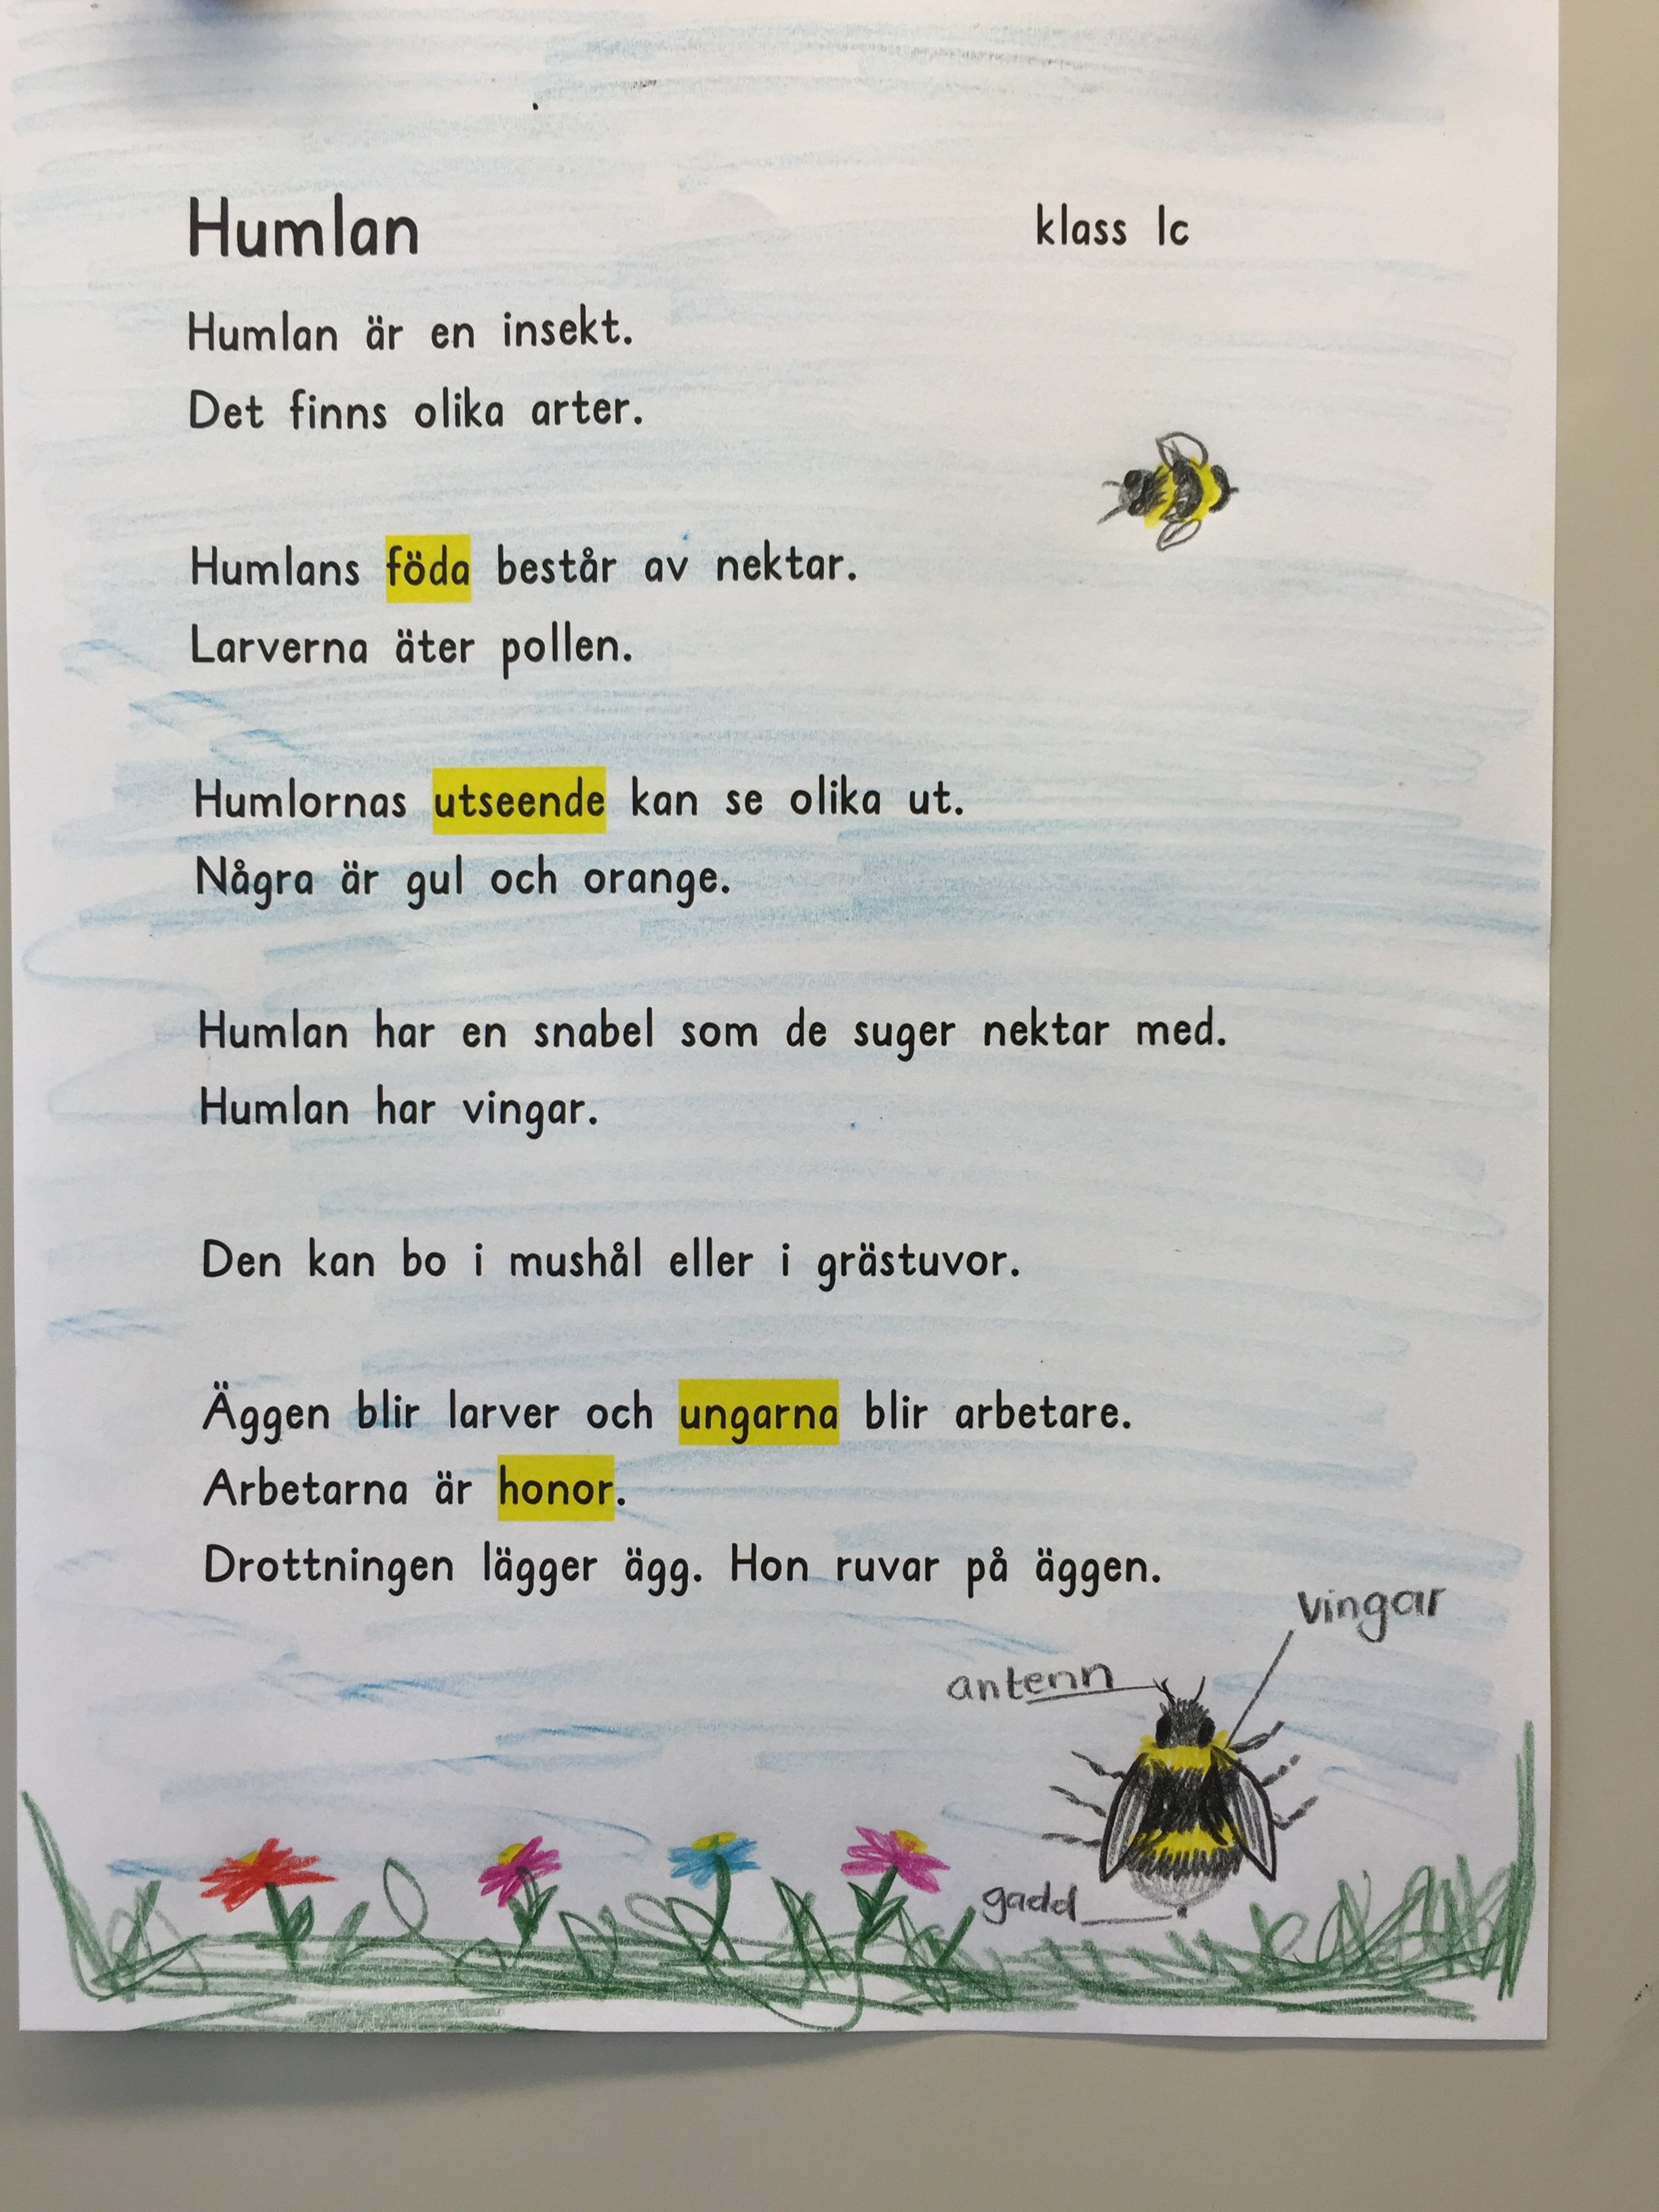 Humlan klass 1c
Humlan är en insekt.
Det finns olika arter.
Humlans föda består av nektar.
Larverna äter pollen.
Humlornas utseende kan se olika ut.
Några är gul och orange.
Humlan har en snabel som de suger nektar med.
Humlan har vingar.
Den kan bo i mushål eller i grästuvor.
Äggen blir larver och ungarna blir arbetare.
Arbetarna är honor.
Drottningen lägger ägg. Hon ruvar på äggen.
vingar
antenn
gadd